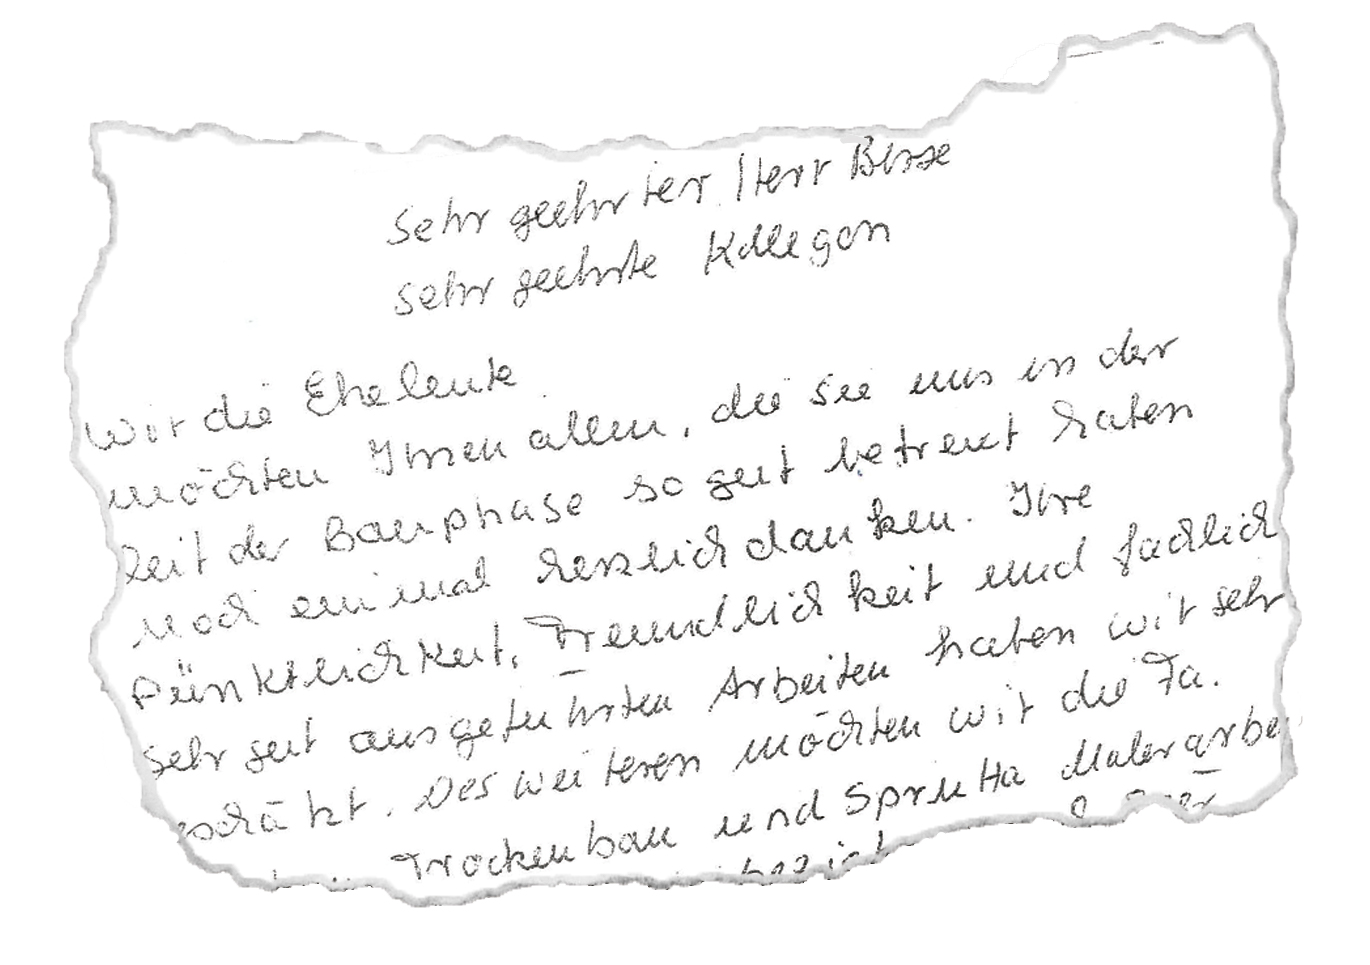 Sehr geehrter Herr Busse
sehr geehrte Kollegen
Wir die Eheleute
möchten Ihnen allen, die Sie uns in der
Zeit der Bauphase so gut betreut haben
noch einmal herzlich danken. Ihre
Pünktlichkeit, Freundlichkeit und fachlich
sehr gut ausgeführten Arbeiten haben wir sehr
geschätzt. Des weiteren möchten wir die Fa.
Trockenbau und Sprutta Malerarbei